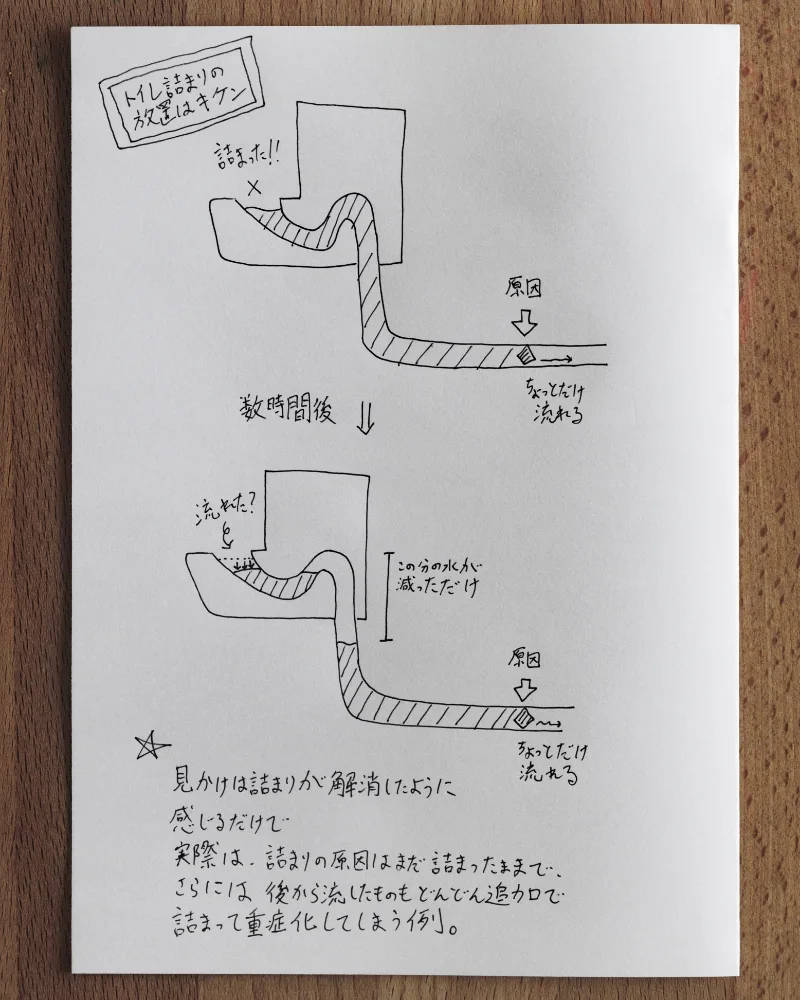 トイレ詰まりの
放置はキケン
詰まった!!
原因
ちょっとだけ
流れる
数時間後
流れた?
この分の水が
減っただけ
原因
ちょっとだけ
流れる
見かけは詰まりが解消したように
感じるだけで
実際は、詰まりの原因はまだ詰まったままで、
さらには後から流したものもどんどん追加口で
詰まって重症化してしまう例。